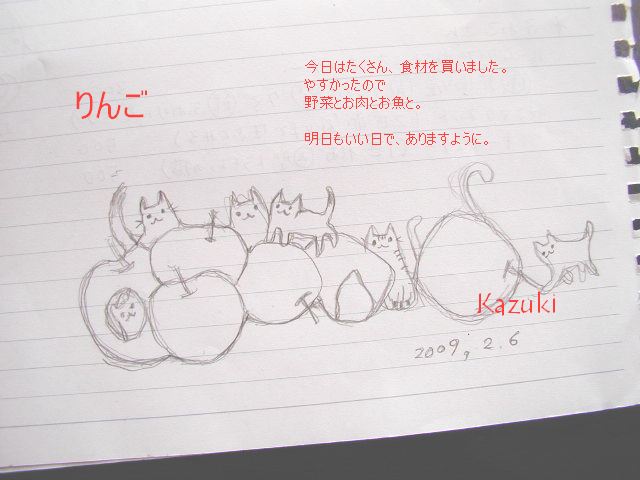 りんご
今日はたくさん、食材を買いました。
やすかったので
野菜とお肉とお魚と。
明日もいい日で、ありますように。
Kazuki
2009. 2. 6